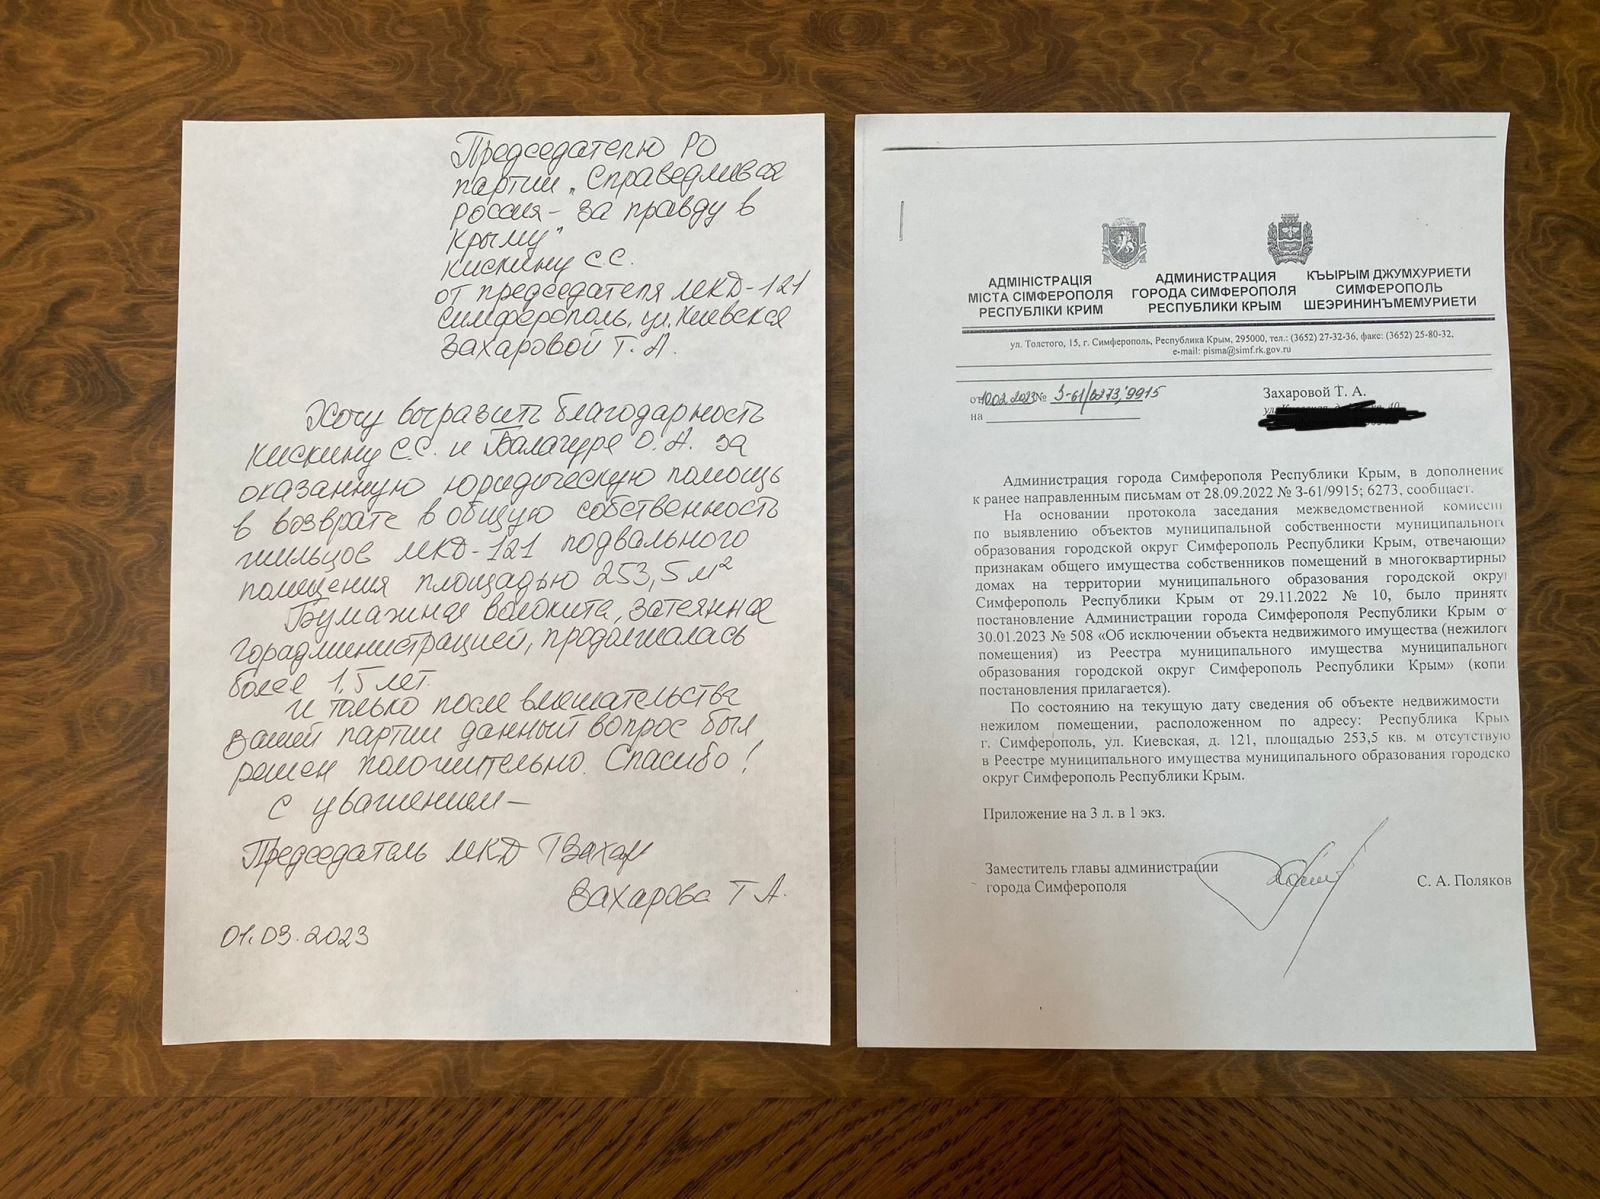 Председателю РО
партии „Справедливая
Россия – за правду в
Крыму"
Кискину С.С.
от председателя МКД-121
Симферополь, ул. Киевская
Захаровой Т. А.
Хочу выразить благодарность
Кискину С.С. и Балагуре О.А. за
оказанную юридическую помощь
в возврате в общую собственность
жильцов МКД-121 подвального
помещения площадью 253,5 м²
Бумажная волокита, затеянная
горадминистрацией, продолжалась
более 1,5 лет.
И только после вмешательства
вашей партии данный вопрос был
решен положительно. Спасибо!
С уважением –
Председатель МКД
Захарова Т А.
01.03.2023
АДМІНІСТРАЦІЯ
МІСТА СІМФЕРОПОЛЯ
РЕСПУБЛІКИ КРИМ
АДМИНИСТРАЦИЯ
ГОРОДА СИМФЕРОПОЛЯ
РЕСПУБЛИКИ КРЫМ
КЪЫРЫМ ДЖУМХУРИЕТИ
СИМФЕРОПОЛЬ
ШЕЭРИНИНЪМЕМУРИЕТИ
ул. Толстого, 15, г. Симферополь, Республика Крым, 295000, тел.: (3652) 27-32-36, факс: (3652) 25-80-32,
e-mail: pisma@simf.rk.gov.ru
от 10.02.2023 № З-61/6273; 9915
на
Захаровой Т. А.
Администрация города Симферополя Республики Крым, в дополнение
к ранее направленным письмам от 28.09.2022 № З-61/9915; 6273, сообщает.
На основании протокола заседания межведомственной комисси
по выявлению объектов муниципальной собственности муниципального
образования городской округ Симферополь Республики Крым, отвечающих
признакам общего имущества собственников помещений в многоквартирных
домах на территории муниципального образования городской округ
Симферополь Республики Крым от 29.11.2022 № 10, было принято
постановление Администрации города Симферополя Республики Крым от
30.01.2023 № 508 «Об исключении объекта недвижимого имущества (нежилого
помещения) из Реестра муниципального имущества муниципального
образования городской округ Симферополь Республики Крым» (копи
постановления прилагается).
По состоянию на текущую дату сведения об объекте недвижимости
нежилом помещении, расположенном по адресу: Республика Крым
г. Симферополь, ул. Киевская, д. 121, площадью 253,5 кв. м отсутствую
в Реестре муниципального имущества муниципального образования городско
округ Симферополь Республики Крым.
Приложение на 3 л. в 1 экз.
Заместитель главы администрации
города Симферополя
С. А. Поляков